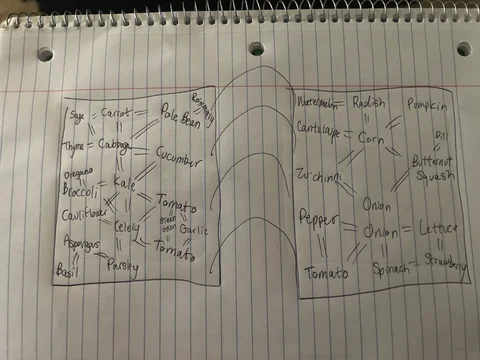 Rosemary
Sage Carrot Pole Bean
Thyme Cabbage Cucumber
Oregano
Broccoli Kale Tomato
Cauliflower Celery Green onion Garlic
Asparagus Tomato
Basil Parsley
Watermelon Radish Pumpkin
Cantelope Corn Dill
Zucchini Butternut Squash
Onion
Pepper Onion Lettuce
Tomato Spinach Strawberry